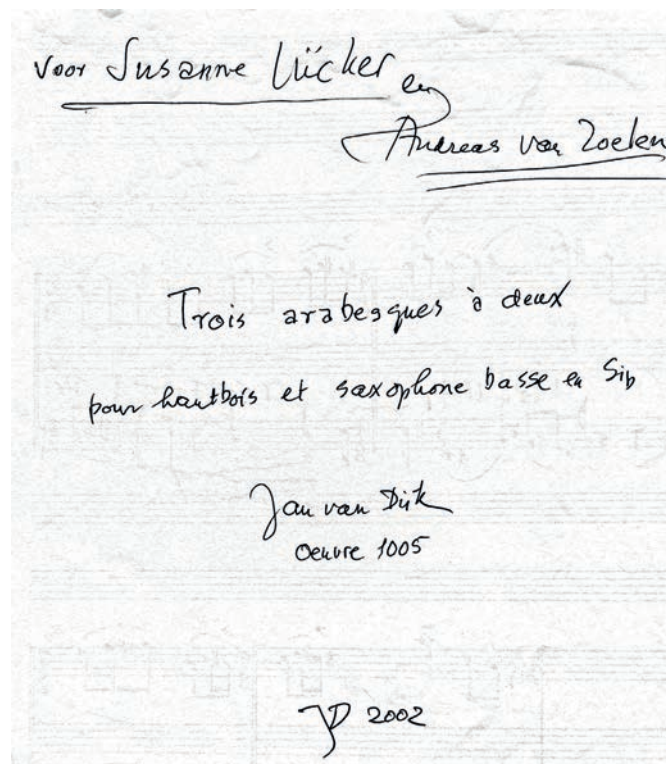 voor Susanne Lücker en
Andreas van Zoelen
Trois arabesques à deux
pour hautbois et saxophone basse en Si♭
Jan van Dijk
Oeuvre 1005
JD 2002